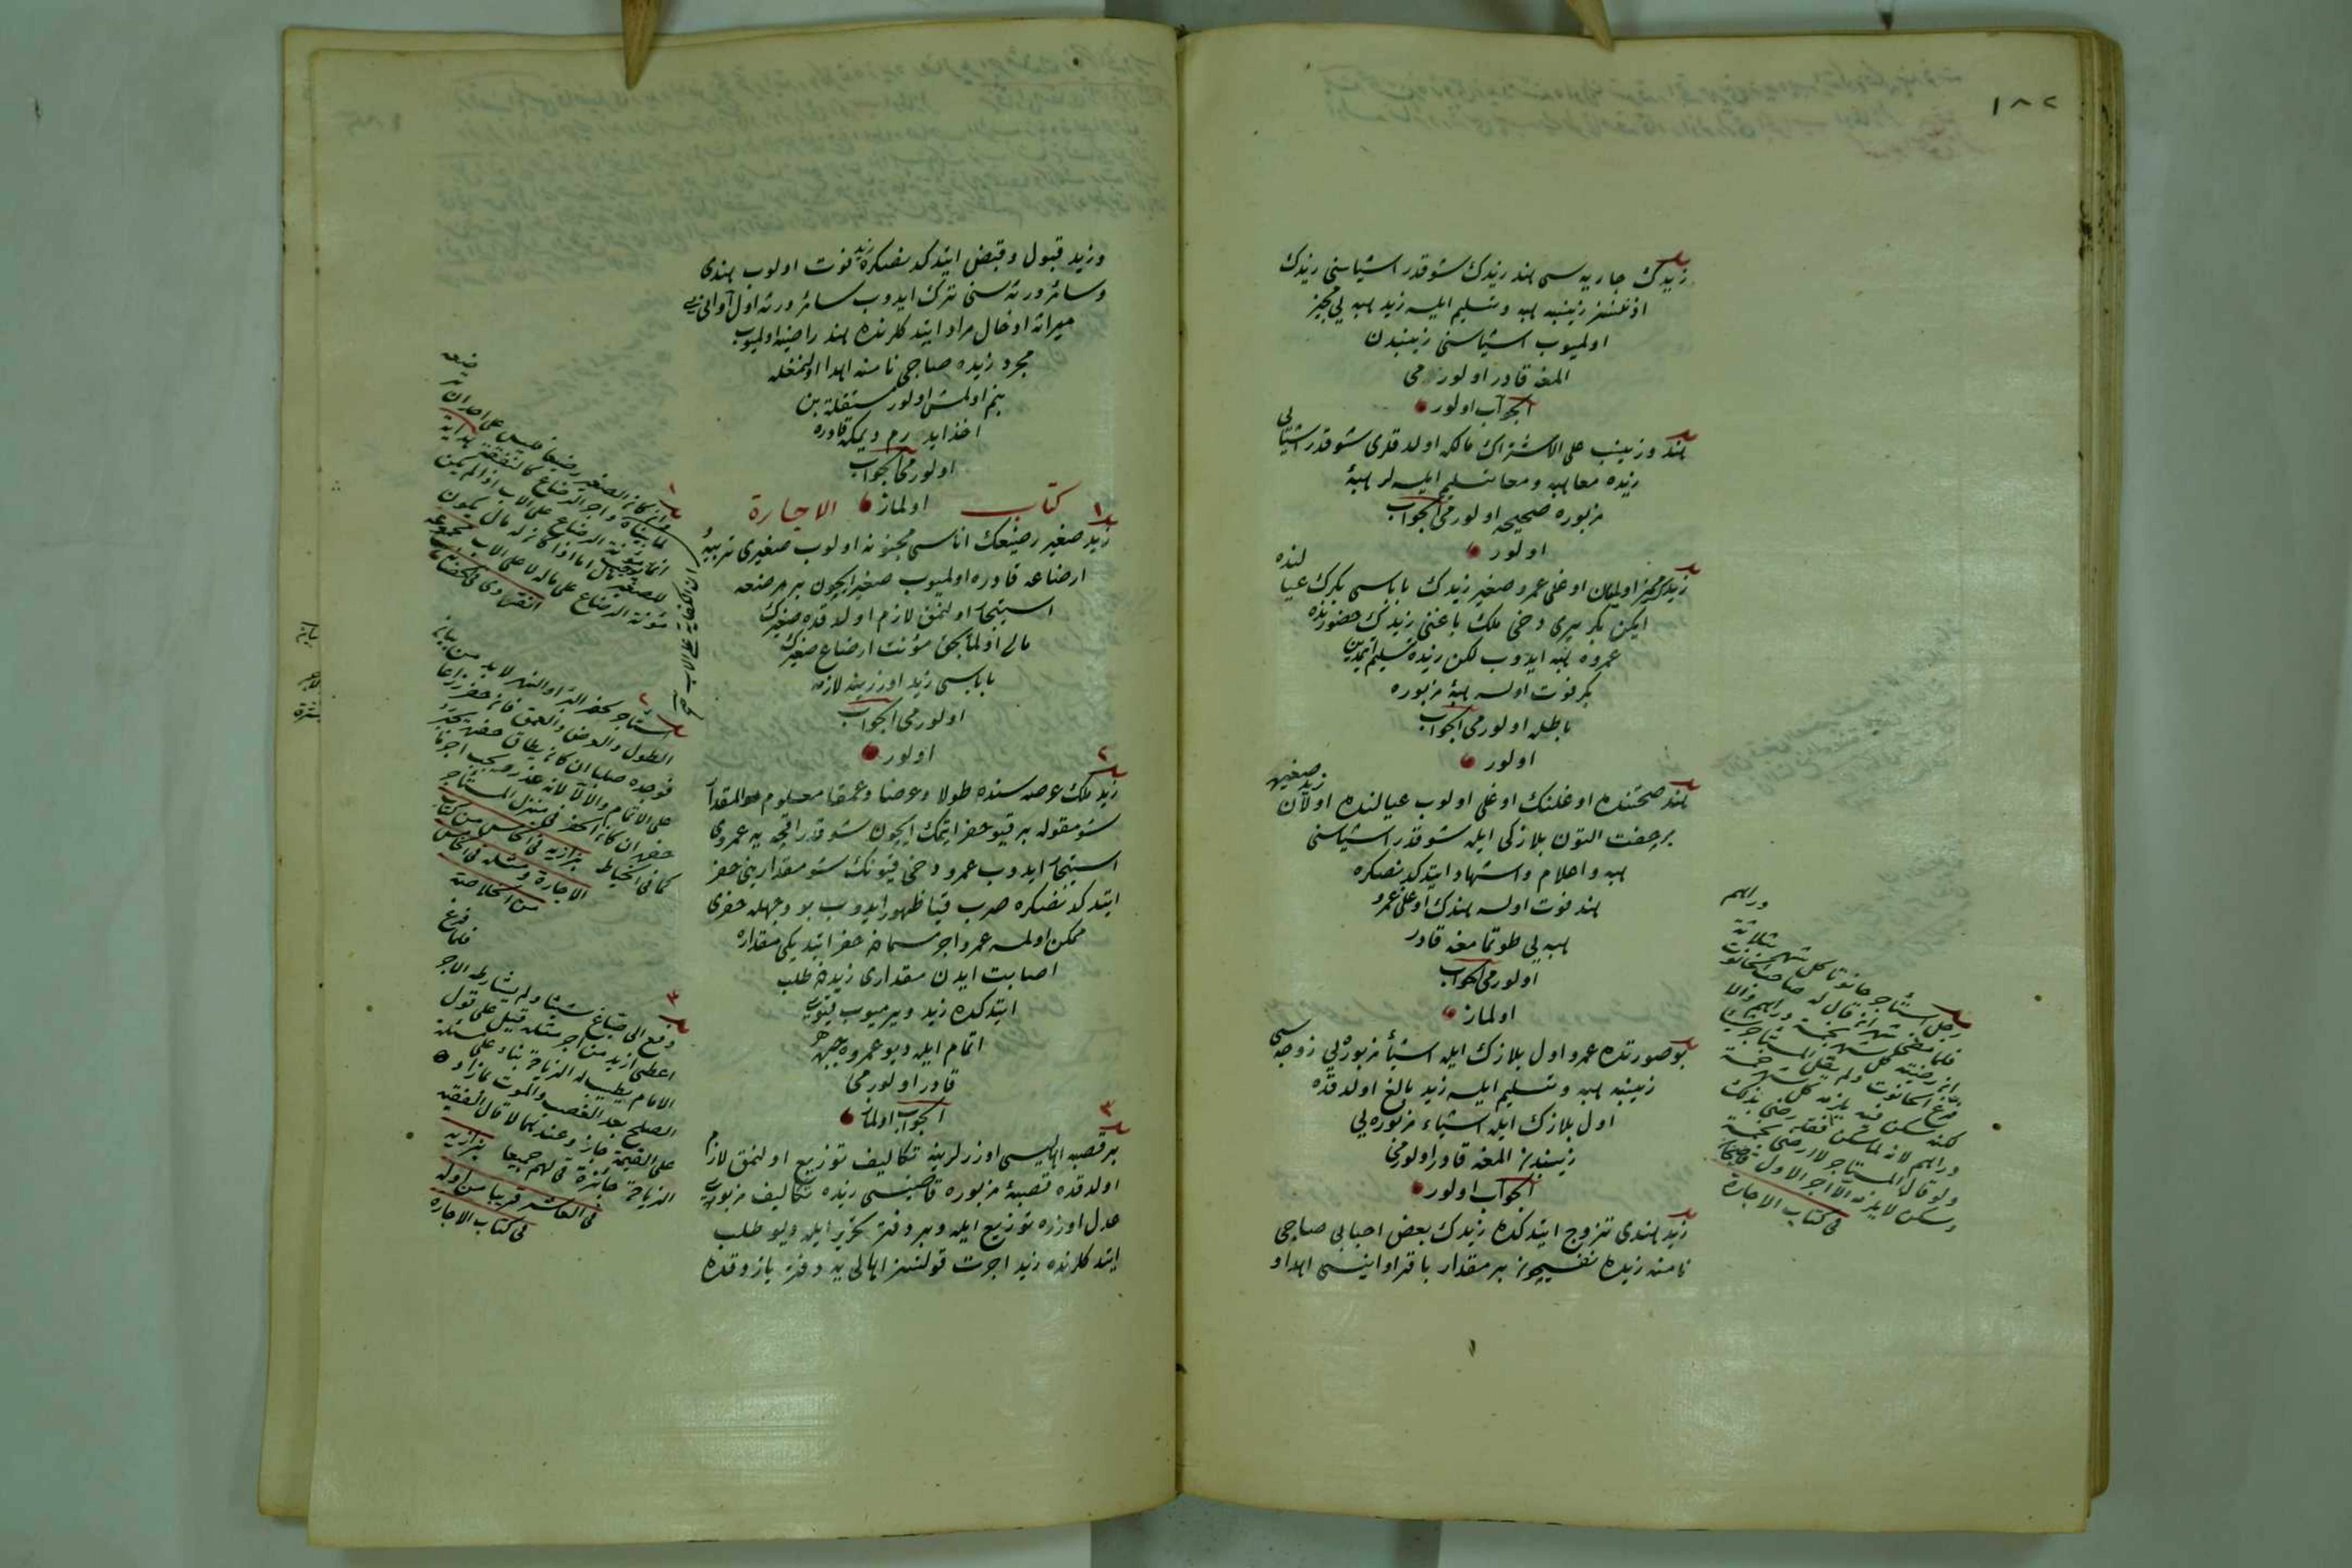 ١٨٢
زيدك جاريه سى هند زيدك شو قدر اشياسنى زيدك
اذنسز زينبه هبه و تسليم ايلسه زيد هبه يى مجيز
اولميوب اشياسنى زينبدن
المغه قادر اولور مى
الجواب اولور
هند و زينب على الاشتراك مالكه اولدقلرى شو قدر اشيالى
زيده معا هبه و معا تسليم ايلسه لر هبۀ
مزبوره صحيحه اولور مى الجواب
اولور
زيدك مميز اوليان اوغلى عمرو صغير زيدك باباسى بكرك عيالنده
ايكن بكر بيرى دخى ملك باغنى زيدك حضورنده
عمروه هبه ايدوب لكن زيده تسليم ايتمدين
بكر فوت اولسه هبۀ مزبوره
باطله اولور مى الجواب
اولور
هند صحتنده اوغلنك اوغلى اولوب عيالنده اولان زيد صغيره
بر جفت التون بلازكى ايله شو قدر اشياسنى
هبه و اعلام و اشهاد ايتدكدنصكره
هند فوت اولسه هندك اوغلى عمرو
هبه يى طوتمامغه قادر
اولور مى الجواب
اولماز
بو صورتده عمرو اول بلازك ايله اشياء مزبوره يى زوجه سى
زينبه هبه و تسليم ايلسه زيد بالغ اولدقده
اول بلازك ايله اشياء مزبوره يى
زينبدن المغه قادر اولور مى
الجواب اولور
زيد هندى تزوج ايتدكده زيدك بعض احبابى صباحى
نامنه زيده نفسيچون بر مقدار باقر اوانيسى اهدا و
دراهم
ثلاثة
رجل استأجر حانوتا كل شهر
فلما مضى شهران قال له صاحب الحانوت
ان رضيت كل شهر بخمسة دراهم والا
فرغ الحانوت ولم يقل المستأجر شيئا
لكنه سكن فيه يلزمه كل شهر خمسة
دراهم لانه لما سكن فقد رضى بذلك
ولو قال المستأجر لا ارضى بخمسة
وسكن لا يلزمه الا اجر الاول قاضيخان
فى كتاب الاجارة
و زيد قبول و قبض ايتدكدنصكره زيد فوت اولوب هندى
و سائر ورثه سنى ترك ايدوب سائر ورثه اول اوانى يى
ميراثه ادخال مراد ايتدكلرنده هند راضيه اولميوب
مجرد زيده صباحى نامنه اهدا اولنمغله
بنم اولمش اولور مستقلة بن
اخذ ايدرم ديمكه قادره
اولور مى الجواب
اولماز
كتاب الاجارة
١
زيد صغير رضيعك اناسى مجنونه اولوب صغيرى تربيه و
ارضاعه قادره اولميوب صغير ايچون بر مرضعه
استيجار اولنمق لازم اولدقده صغيرك
مالى اولمايجق مؤنت ارضاع صغيرك
باباسى زيد اوزرينه لازمه
اولور مى الجواب
اولور
٢
زيد ملك عرصه سنده طولا و عرضا و عمقا معلوم المقدار
شو مقوله بر قيو حفر ايتمك ايچون شو قدر اقچه يه عمروى
استيجار ايدوب عمرو دخى قيونك شو مقدارينى حفر
ايتدكدنصكره صرب قيا ظهور ايدوب بو وجهله حفرى
ممكن اولمسه عمرو اجر مسمادن حفر ايتديكى مقداره
اصابت ايدن مقدارى زيددن طلب
ايتدكده زيد ويرميوب قيويى
اتمام ايله ديو عمروه جبره
قادر اولور مى
الجواب اولماز
٣
بر قصبه اهاليسى اوزرلرينه تكاليف توزيع اولنمق لازم
اولدقده قصبۀ مزبوره قاضيسى زيده تكاليف مزبوره يى
عدل اوزره توزيع ايله و بر دفتر تحرير ايله ديو طلب
ايتدكلرنده زيد اجرت قولنسز اهالى يه دفتر يازدقده
١
وان كان الصغير رضيعا فليس على امه ان ترضعه
لما بيناه واجر الرضاع كالنفقة هداية
انما تجب مؤنة الرضاع على الاب اذا لم يكن
للصغير مال اما اذا كان له مال يكون
مؤنة الرضاع على ماله لا على الاب مجموعه
انقروى فى الحضانة
٢
استأجر لحفر البئر او النهر لا بد من بيان
الطول والعرض والعمق فان حفر ذراعا
فوجده صلبا ان كان يطاق حفره يجبر
على الاتمام والا لا لانه عذر ويجب اجر ما
حفر ان كان الحفر فى منزل المستأجر
كما فى الخياط بزازيه فى الخامس من كتاب
الاجارة ومثله فى الخامس
من الخلاصة
٣
دفع الى صباغ شيئا ولم يشارطه الاجر فلما فرغ
اعطى ازيد من اجر مثله قيل على قول
الامام يطيب له الزيادة بناء على مسئلة
الصلح بعد الغصب والموت لما زاد
على القيمة جاز وعندهما لا قال الفقيه
الزيادة جائزة فى قولهم جميعا بزازيه
فى العاشر قريبا من اوله
فى كتاب الاجاره